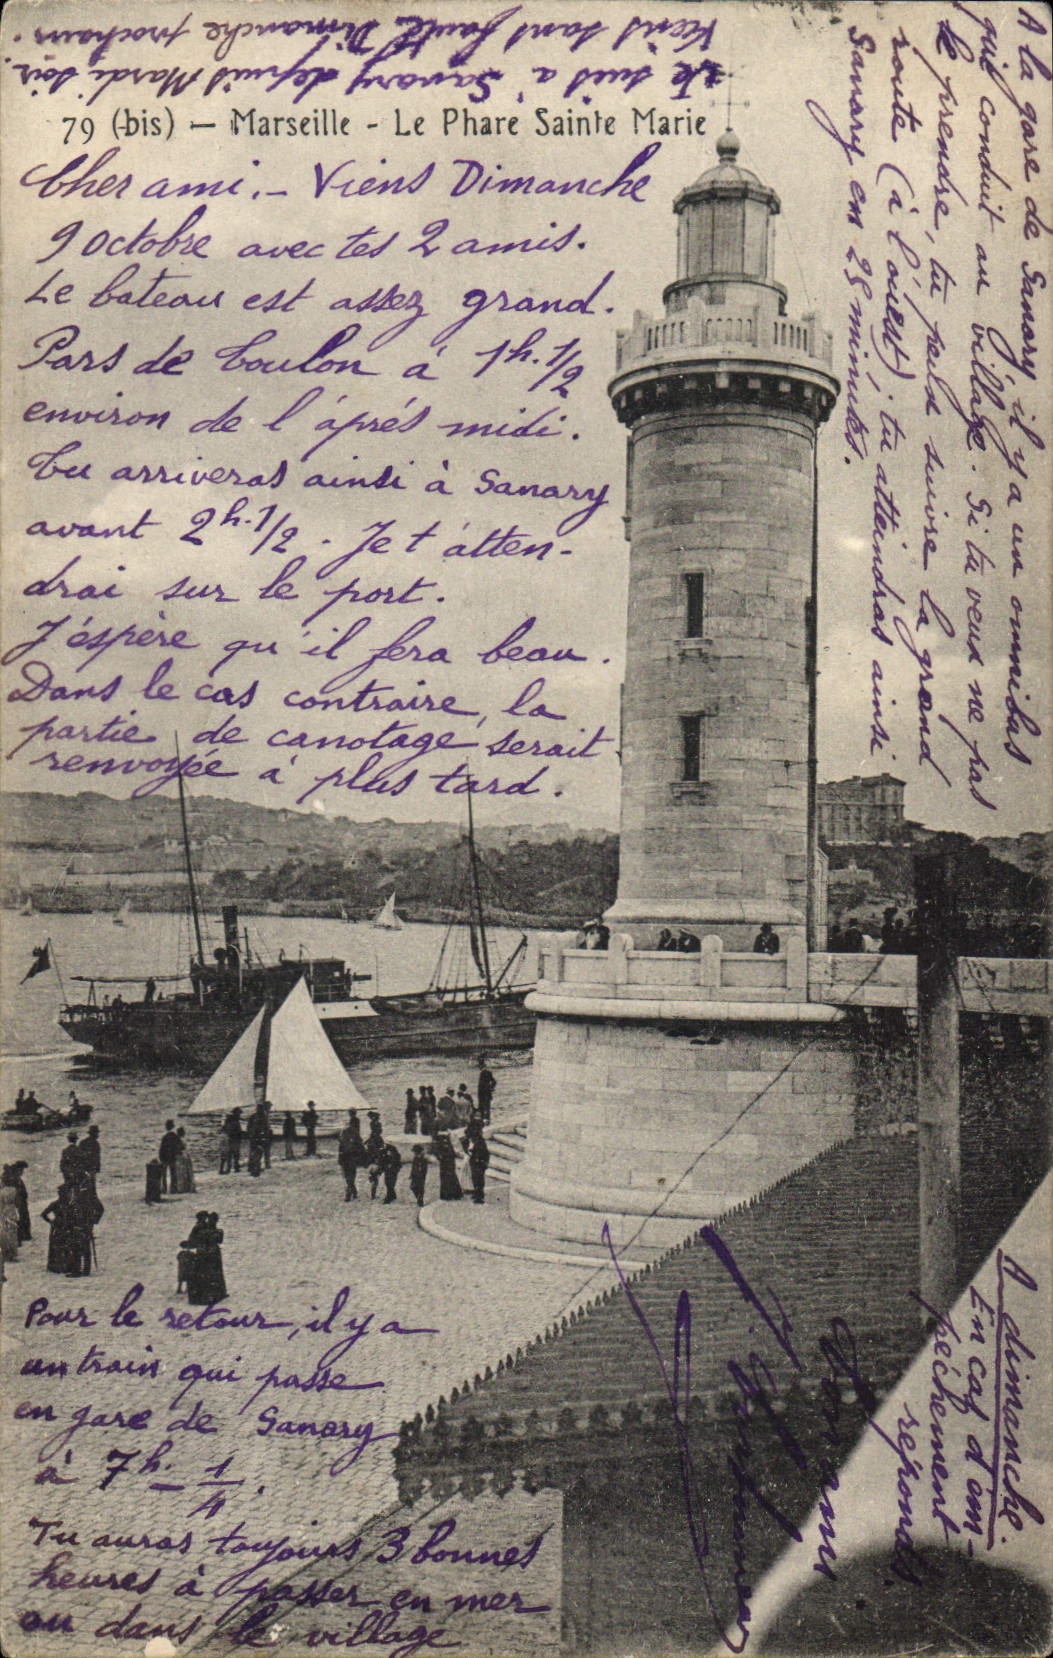 79 (bis) — Marseille - Le Phare Sainte Marie
Cher ami. — Viens Dimanche
9 octobre avec tes 2 amis.
Le bateau est assez grand.
Pars de Toulon à 1h. 1/2
environ de l'àprés midi.
Tu arriveras ainsi à Sanary
avant 2h. 1/2. Je t'atten-
drai sur le port.
J'éspère qu'il fera beau.
Dans le cas contraire, la
partie de canotage serait
renvoyée à plus tard.
Pour le retour, il y a
un train qui passe
en gare de Sanary
à 7h. — 1/4.
Tu auras toujours 3 bonnes
heures à passer en mer
ou dans le village
A la gare de Sanary il y a un omnibus
qui conduit au village. Si tu veux ne pas
le prendre, tu peux suivre la grand
route (à l'ouest); tu atteindras ainsi
Sanary en 25 minutes.
Je suis à Sanary depuis Mardi soir.
Viens sans faute Dimanche prochain.
A dimanche.
En cas d'em-
pêchement
réponds.
Ton ami